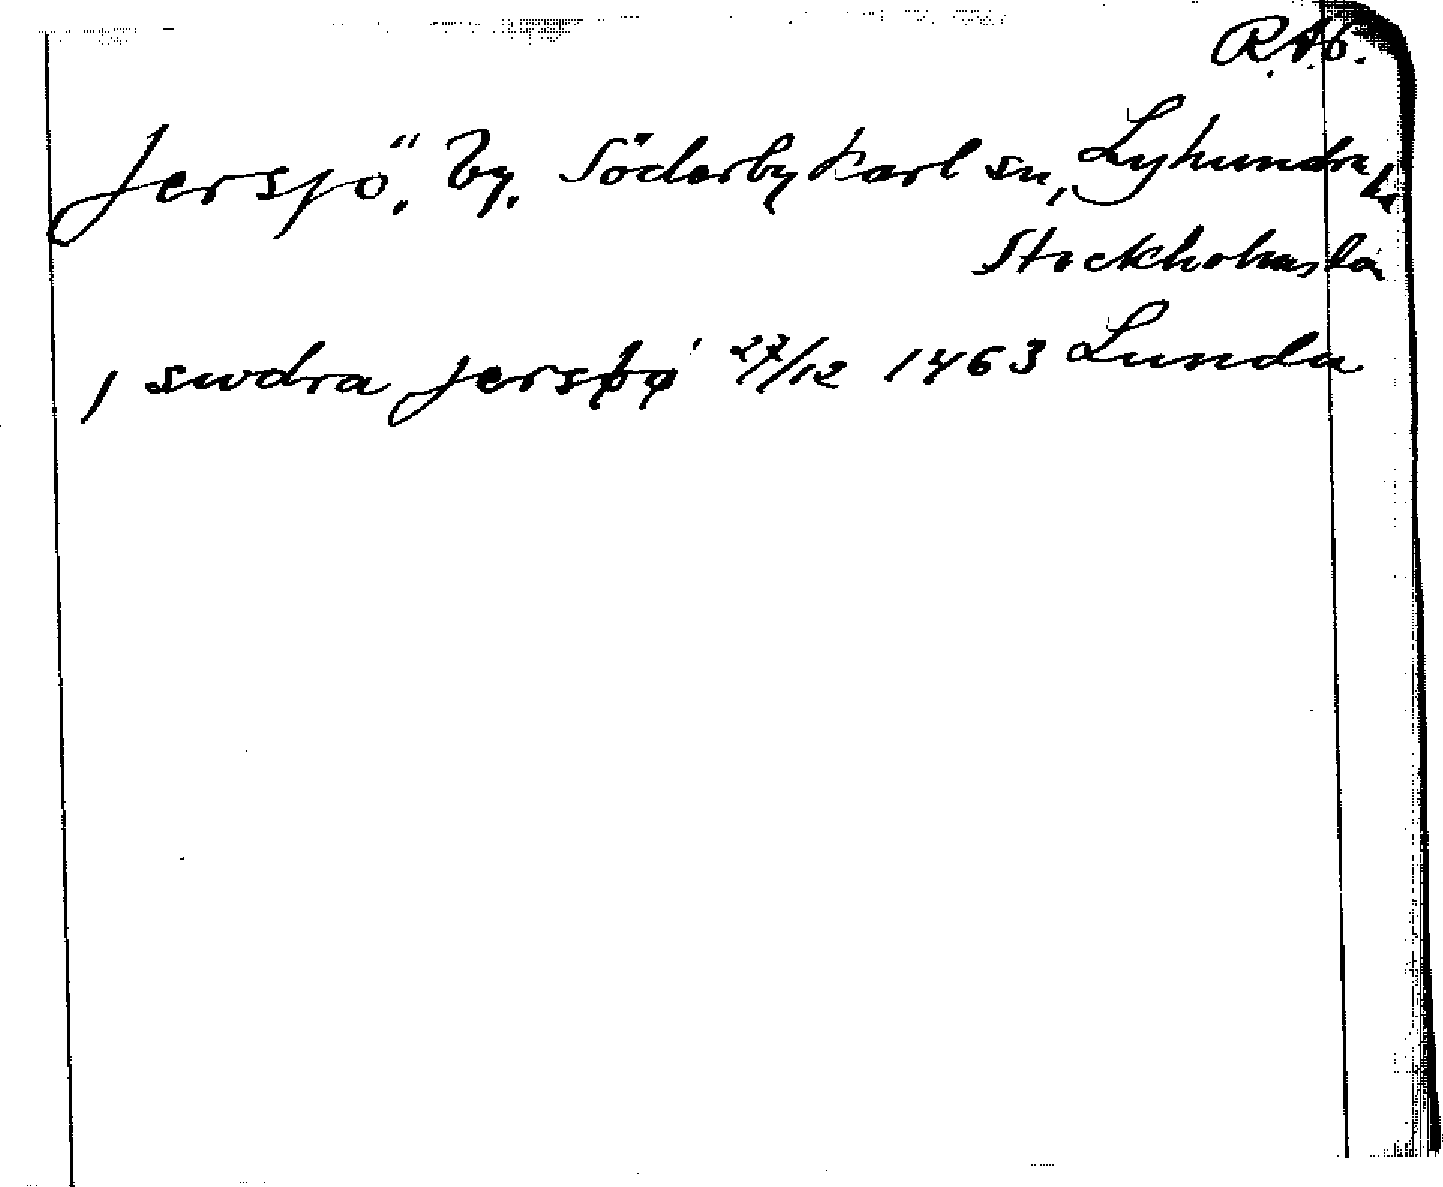 R.A.b.
Jersjö. by. Söderbykarl sn, Lyhundra h
Stockholms län
, swdra Jersþø' 27/12 1463 Lunda